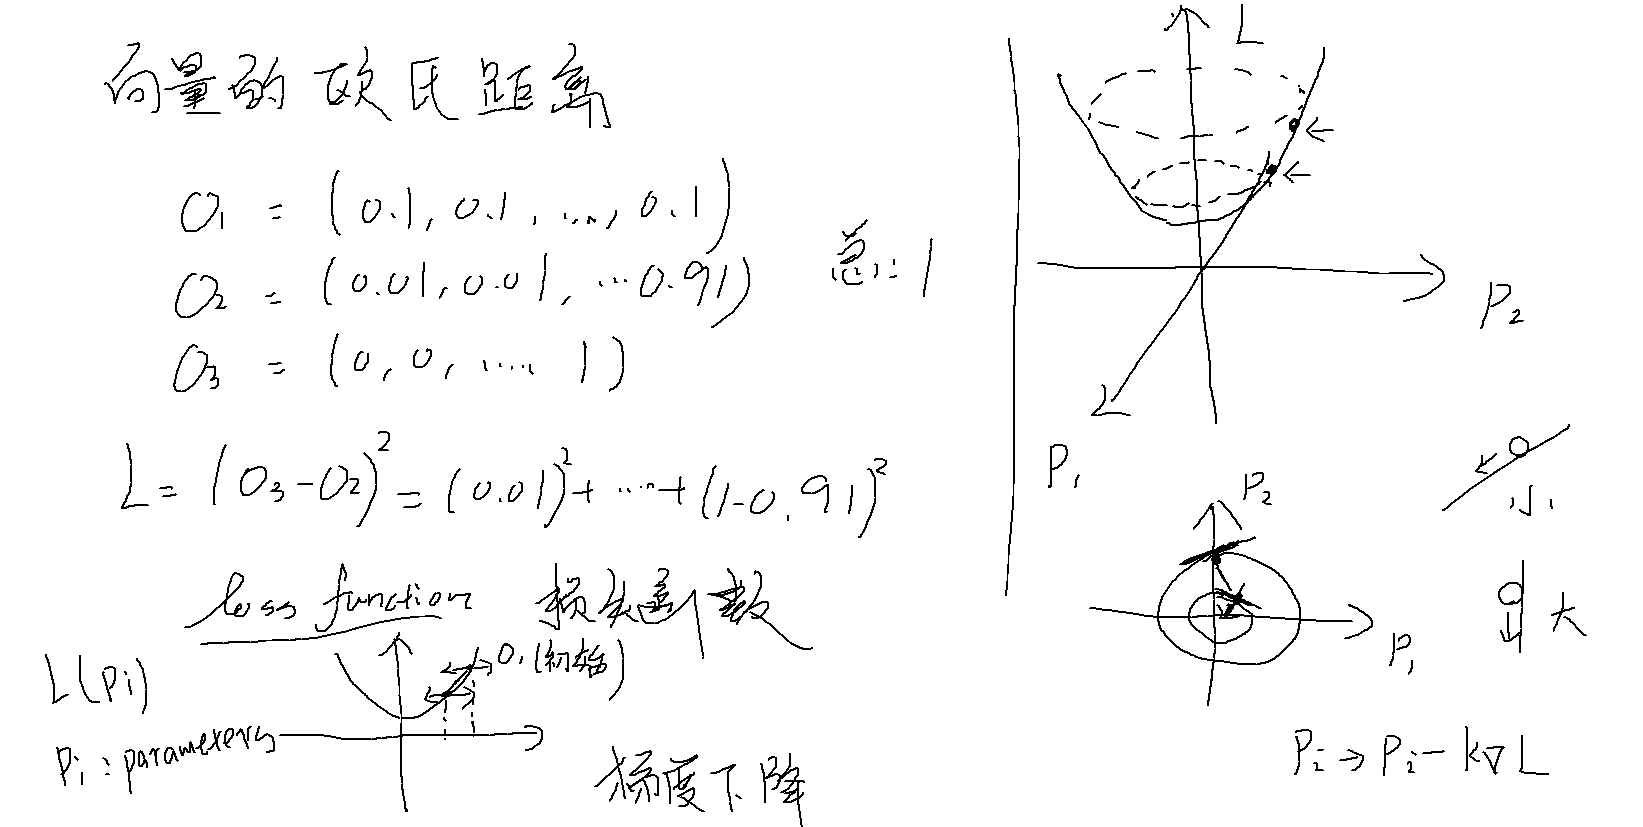 向量的欧氏距离
O₁ = (0.1, 0.1, ..., 0.1)
O₂ = (0.01, 0.01, ...0.91)
总:1
O₃ = (0, 0, .... 1)
L = (O₃-O₂)² = (0.01)² + ... + (1-0.91)²
loss function 损失函数
L(Pi)
O₁(初始)
Pi : parameters
梯度下降
L
P₂
P₁
P₂
P₁
小
大
Pi → Pi - k∇L